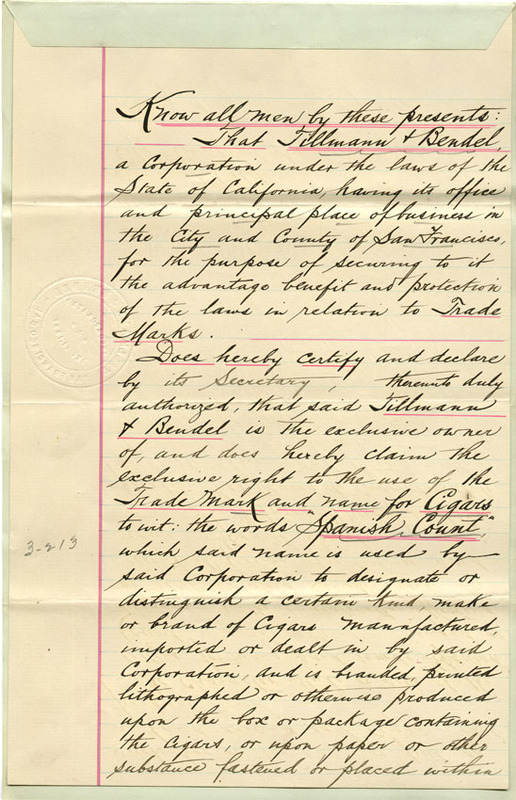 Know all men by these presents:
That Tillmann & Bendel,
a Corporation under the laws of the
State of California, having its office
and principal place of business in
the City and County of San Francisco,
for the purpose of securing to it
the advantage benefit and protection
of the laws in relation to Trade
Marks.
Does hereby certify and declare
by its Secretary, thereunto duly
authorized, that said Tillmann
& Bendel is the exclusive owner
of, and does hereby claim the
exclusive right to the use of the
Trade Mark and name for Cigars
to wit: the words "Spanish Count,"
which said name is used by
said Corporation to designate or
distinguish a certain kind, make
or brand of Cigars manufactured,
imported or dealt in by said
Corporation, and is branded, printed
lithographed or otherwise produced
upon the box or package containing
the Cigars, or upon paper or other
substance fastened or placed within
3-213